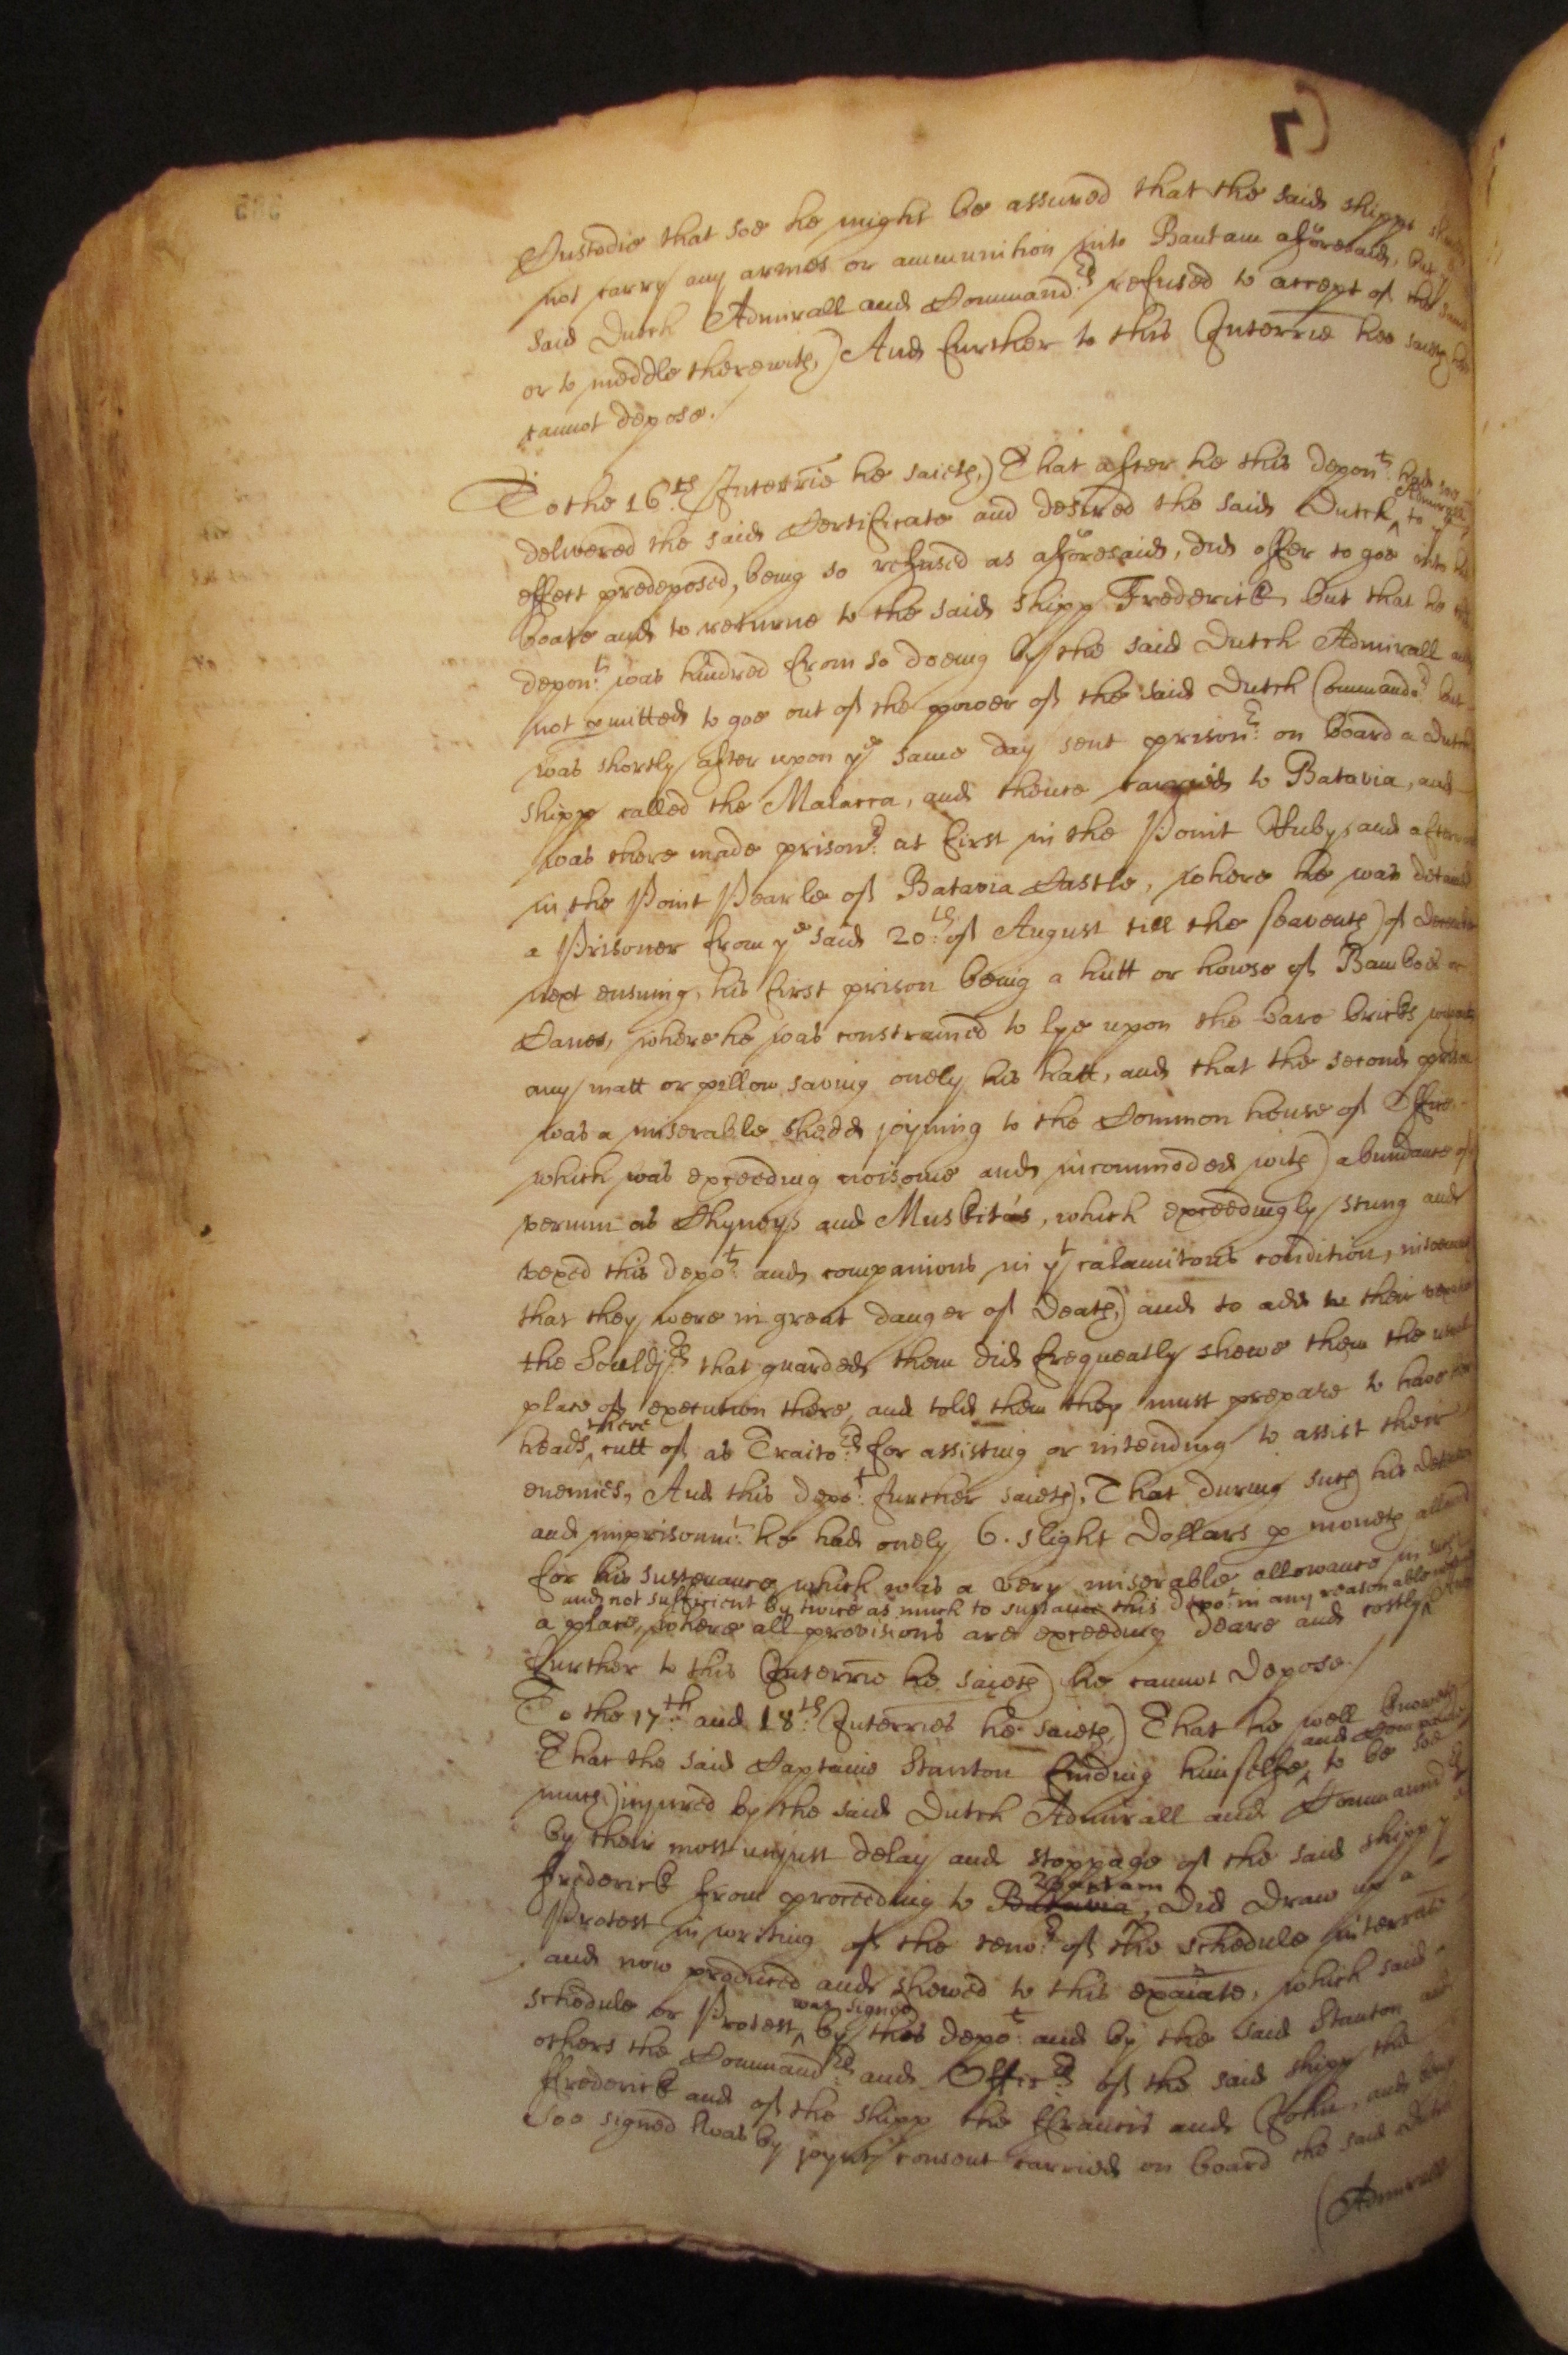 Custodie that soe he might be assured that the said shippe
not carry any armes or ammunition into Bantam aforesaid, but
said Dutch Admirall and Command:rs refused to accept of the same
or to meddle therewith, And further to this Interrie hee saieth hee
cannot depose./
To the 16:th Interrie he saieth, That after he this depon:t had soe
delivered the said Certificate and desired the said Dutch ^Admirall to ye
effect predeposed, being so refused as aforesaid, did offer to goe into his
boate and to returne to the said shipp Frederick, but that he this
depon:t was hindred from so doeing by the said Dutch Admirall and
not pmitted to goe out of the power of the said Dutch Command:rs but
was shortly after upon ye same day sent prison:r on board a Dutch
shipp called the Malacca, and thence carried to Batavia, and
was there made prison:r at first in the Point Ruby, and afterw
in the Point Pearle of Batavia Castle, where he was detained
a Prisoner from ye said 20:th of August till the seaventh of
next ensuing, his first prison being a hutt or howse of Bamboes or
Canes, where he was constrained to lye upon the bare bricks without
any matt or pillow saving onely his hatt, and that the second prison
was a miserable shedd joyning to the Common house of Office
which was exceeding noisome and incommoded with abundance of
vermin as Chyneys and Muskitos, which exceedingly stung and
vexed this depo:t and companions in yt calamitous condition, insoemuch
that they were in great danger of Death, and to add to their
the Souldj:rs that guarded them did frequently shewe them the usual
place of execution there, and told them they must prepare to have their
heads ^there cutt of as Traito:rs for assisting or intending to assist their
enemies, And this depo:t further saieth, That during such his
and imprisonm:t he had onely 6. slight Dollars p moneth allowed
for his sustenance, which was a very miserable allowance in such
and not sufficient by twice as much to sustaine this depo:t in any reasonable
a place, where all provisions are exceeding deare and costly ^ And
further to this Interrie he saieth he cannot depose./
To the 17:th and 18:th Interries he saieth, That he well knoweth
That the said Captaine Stanton finding himselfe ^and Companie to be soe
much injured by the said Dutch Admirall and Command:rs
by their most unjust delay and stoppage of the said shipp
Frederick from proceeding to Batavia Bantam, did draw up a
Protest in writing of the teno:r of the schedule interrate
and now produced and shewed to this exaiate, which said
schedule or Protest ^was signed by this depo:t and by the said Stanton and
others the Command:rs and Offic:rs of the said shipp the
Frederick and of the shipp the Francis and John, and being
soo signed was by joynt consent carried on board the said Dutch
(Admirall